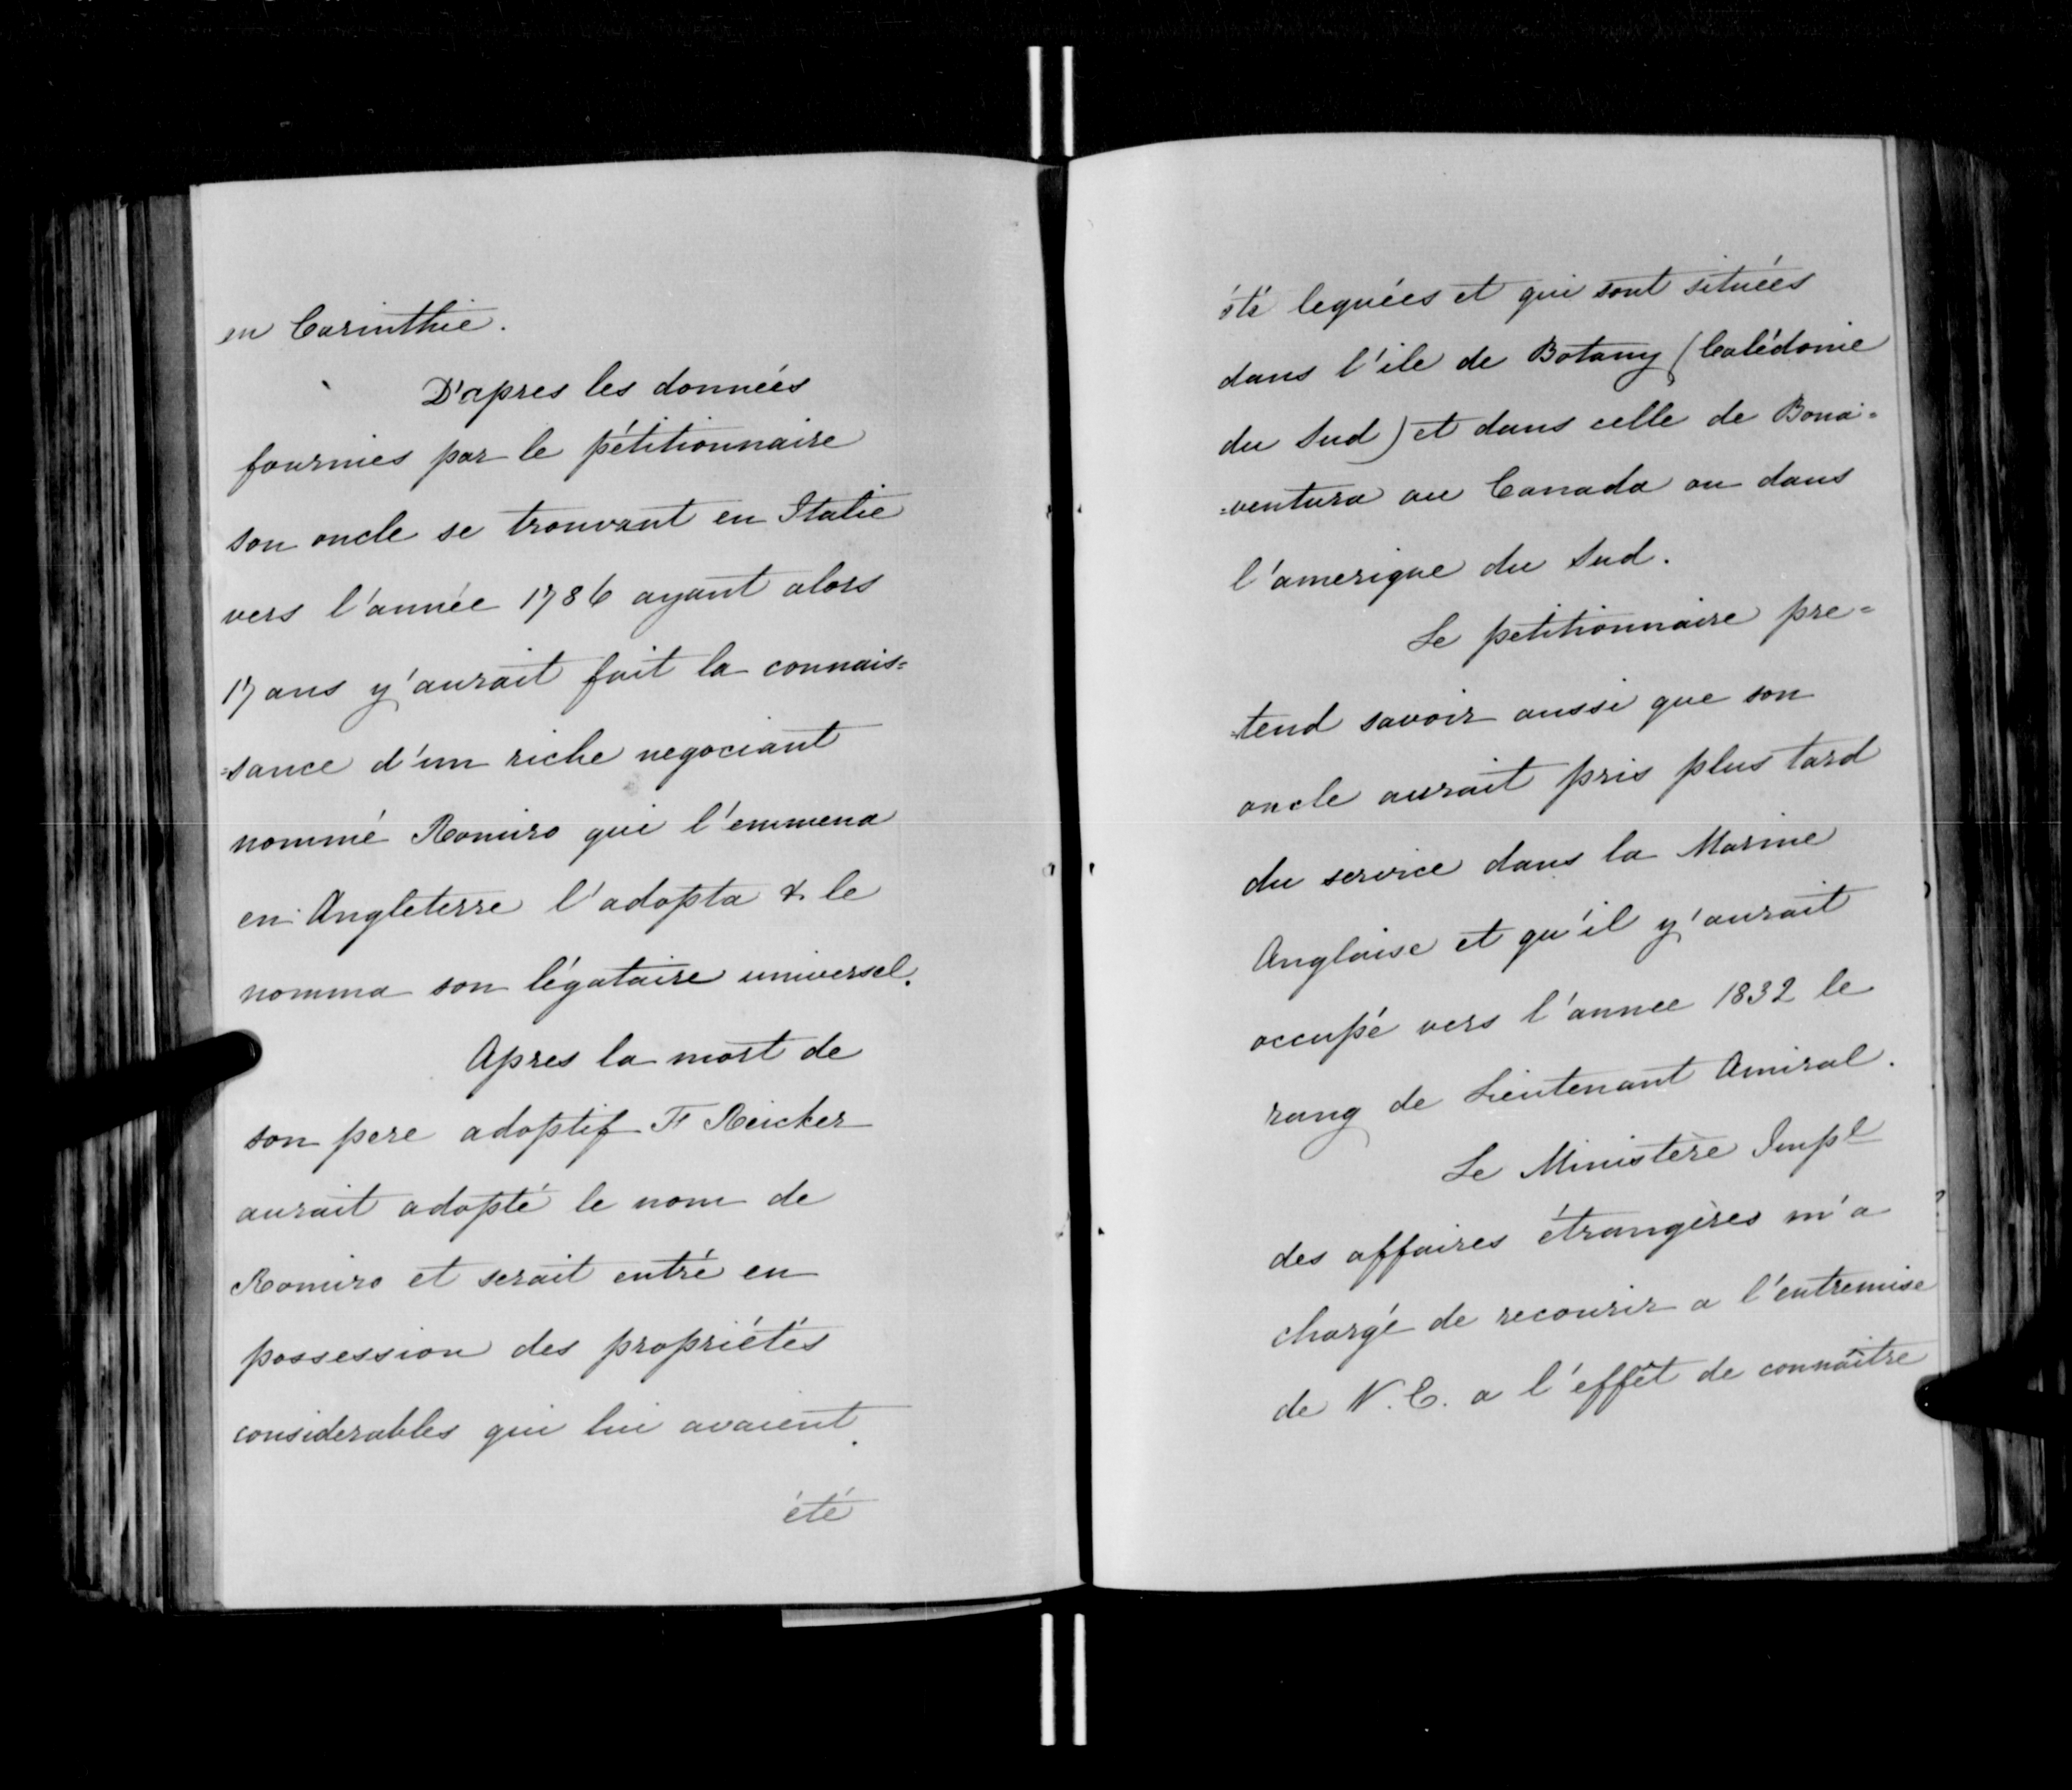 en Carinthie.
D'apres les données
fournies par le pétitionnaire
son oncle se trouvant en Italie
vers l'année 1786 ayant alors
17 ans y'aurait fait la connais=
=sance d'un riche negociant
nommé Romiro qui l'emmena
en Angleterre l'adopta & le
nomma son légataire universel.
Apres la mort de
son pere adoptif Fr Reicker
aurait adopté le nom de
Romiro et serait entré en
possession des propriétés
considerables qui lui avaient
été
été leguées et qui sont situées
dans l'ile de Botany (Calédonie
du Sud) et dans celle de Bona=
=ventura au Canada ou dans
l'amerique du Sud.
Le petitionnaire pre=
=tend savoir aussi que son
oncle aurait pris plus tard
du service dans la Marine
Anglaise et qu'il y'aurait
occupé vers l'annee 1832 le
rang de Lieutenant Amiral.
Le Ministère Impl
des affaires étrangères m'a
chargé de recourir a l'entremise
de V. E. a l'effêt de connaître